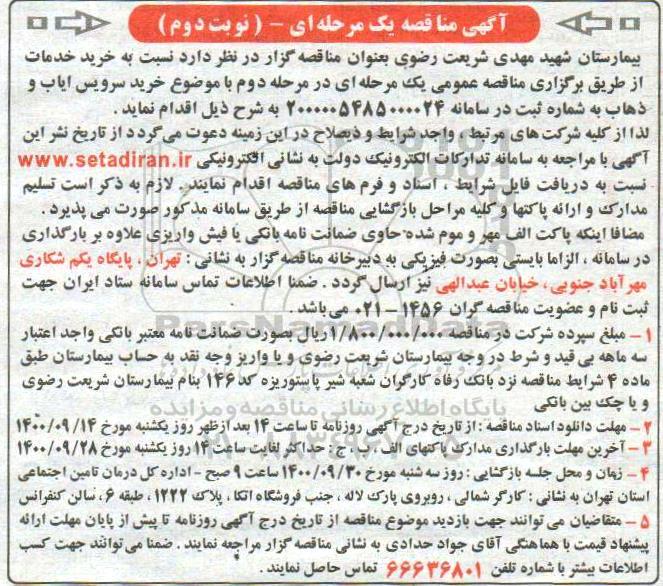 آگهی مناقصه یک مرحله ای - ( نوبت دوم )
بیمارستان شهید مهدی شریعت رضوی بعنوان مناقصه گزار در نظر دارد نسبت به خرید خدمات
از طریق برگزاری مناقصه عمومی یک مرحله ای در مرحله دوم با موضوع خرید سرویس ایاب و
ذهاب به شماره ثبت در سامانه ۲۰۰۰۰۰۵۴۸۵۰۰۰۰۲۴ به شرح ذیل اقدام نماید .
لذا از کلیه شرکت های مرتبط ، واجد شرایط و ذیصلاح در این زمینه دعوت می گردد از تاریخ نشر این
آگهی با مراجعه به سامانه تدارکات الکترونیک دولت به نشانی الکترونیکی www.setadiran.ir
نسبت به دریافت فایل شرایط ، اسناد و فرم های مناقصه اقدام نمایند . لازم به ذکر است تسلیم
مدارک و ارائه پاکتها و کلیه مراحل بازگشایی مناقصه از طریق سامانه مذکور صورت می پذیرد .
مضافا اینکه پاکت الف مهر و موم شده حاوی ضمانت نامه بانکی یا فیش واریزی علاوه بر بارگذاری
در سامانه ، الزاما بایستی بصورت فیزیکی به دبیرخانه مناقصه گزار به نشانی : تهران ، پایگاه یکم شکاری
مهرآباد جنوبی ، خیابان عبدالهی نیز ارسال گردد . ضمنا اطلاعات تماس سامانه ستاد ایران جهت
ثبت نام و عضویت مناقصه گران ۱۴۵۶-۰۲۱ می باشد .
۱ - مبلغ سپرده شرکت در مناقصه ۱/۸۰۰/۰۰۰/۰۰۰ ریال بصورت ضمانت نامه معتبر بانکی واجد اعتبار
سه ماهه بی قید و شرط در وجه بیمارستان شریعت رضوی و یا واریز وجه نقد به حساب بیمارستان طبق
ماده ۴ شرایط مناقصه نزد بانک رفاه کارگران شعبه شیر پاستوریزه کد ۱۴۶ بنام بیمارستان شریعت رضوی
و یا چک بین بانکی
۲- مهلت دانلود اسناد مناقصه : از تاریخ درج آگهی روزنامه تا ساعت ۱۴ بعد ازظهر روز یکشنبه مورخ ۱۴۰۰/۰۹/۱۴
۳ - آخرین مهلت بارگذاری مدارک پاکتهای الف ، ب ، ج : حداکثر لغایت ساعت ۱۴ روز یکشنبه مورخ ۱۴۰۰/۰۹/۲۸
۴ - زمان و محل جلسه بازگشایی : روز سه شنبه مورخ ۱۴۰۰/۰۹/۳۰ ساعت ۹ صبح - اداره کل درمان تامین اجتماعی
استان تهران به نشانی : کارگر شمالی ، روبروی پارک لاله ، جنب فروشگاه اتکا ، پلاک ۱۲۲۲ ، طبقه ۶ ، سالن کنفرانس
۵ - متقاضیان می توانند جهت بازدید موضوع مناقصه از تاریخ درج آگهی روزنامه تا پیش از پایان مهلت ارائه
پیشنهاد قیمت با هماهنگی آقای جواد حدادی به نشانی مناقصه گزار مراجعه نمایند . ضمنا می توانند جهت کسب
اطلاعات بیشتر با شماره تلفن ۶۶۶۳۶۸۰۱ تماس حاصل نمایند .
ParsNamadData
پایگاه اطلاع رسانی مناقصه و مزایده